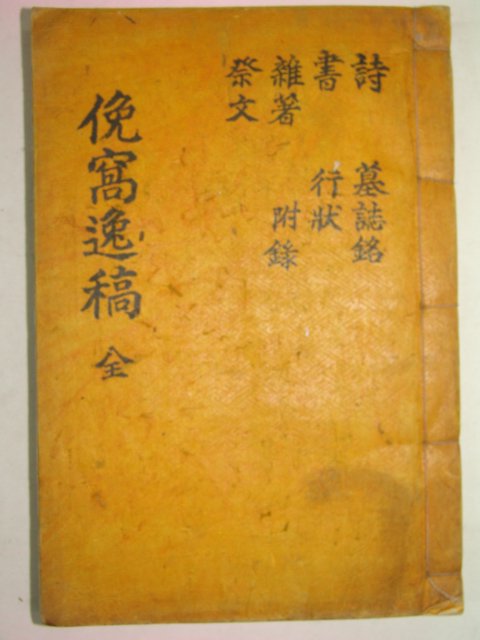 詩 墓誌銘
書 行狀
雜著 附錄
祭文
俛窩逸稿 全